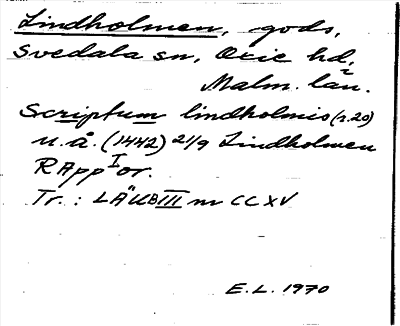 Lindholmen, gods,
Svedala sn, Oxie hd,
Malm. län.
Scriptum lindholmis (r. 20)
u. å. (1442) 21/9 Lindholmen
RApp I or.
Tr.: LÄUB III nr CCXV
E.L. 1970